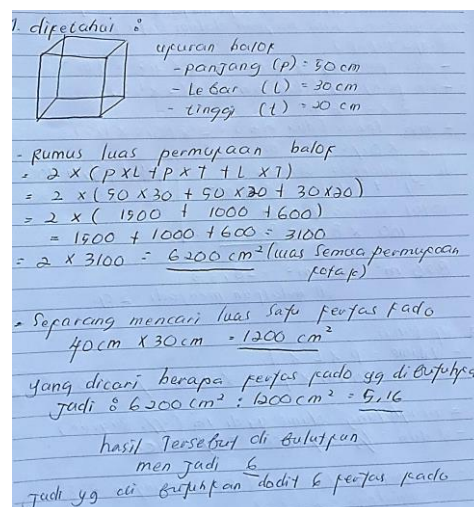 1. diketahui :
ukuran balok
- panjang (p) = 50 cm
- Lebar (L) = 30 cm
- tinggi (t) = 20 cm
- Rumus luas permukaan balok
= 2 x (P x L + P x T + L x T)
= 2 x (50 x 30 + 50 x 20 + 30 x 20)
= 2 x ( 1500 + 1000 + 600)
= 1500 + 1000 + 600 = 3100
= 2 x 3100 = 6200 cm² (luas semua permukaan
kotak)
- Sekarang mencari luas satu kertas kado
40 cm x 30 cm = 1200 cm²
yang dicari berapa kertas kado yg dibutuhka
Jadi : 6200 cm² : 1200 cm² = 5,16
hasil Tersebut di bulatkan
men jadi 6
Jadi yg di butuhkan dodit 6 kertas kado